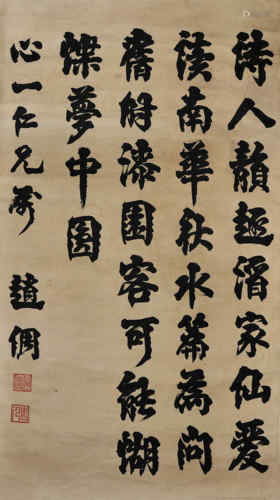 詩人韻趣酒家仙愛
讀南華秋水篇為問
舊時漆園客可能蝴
蝶夢中圓
心一仁兄
趙倜